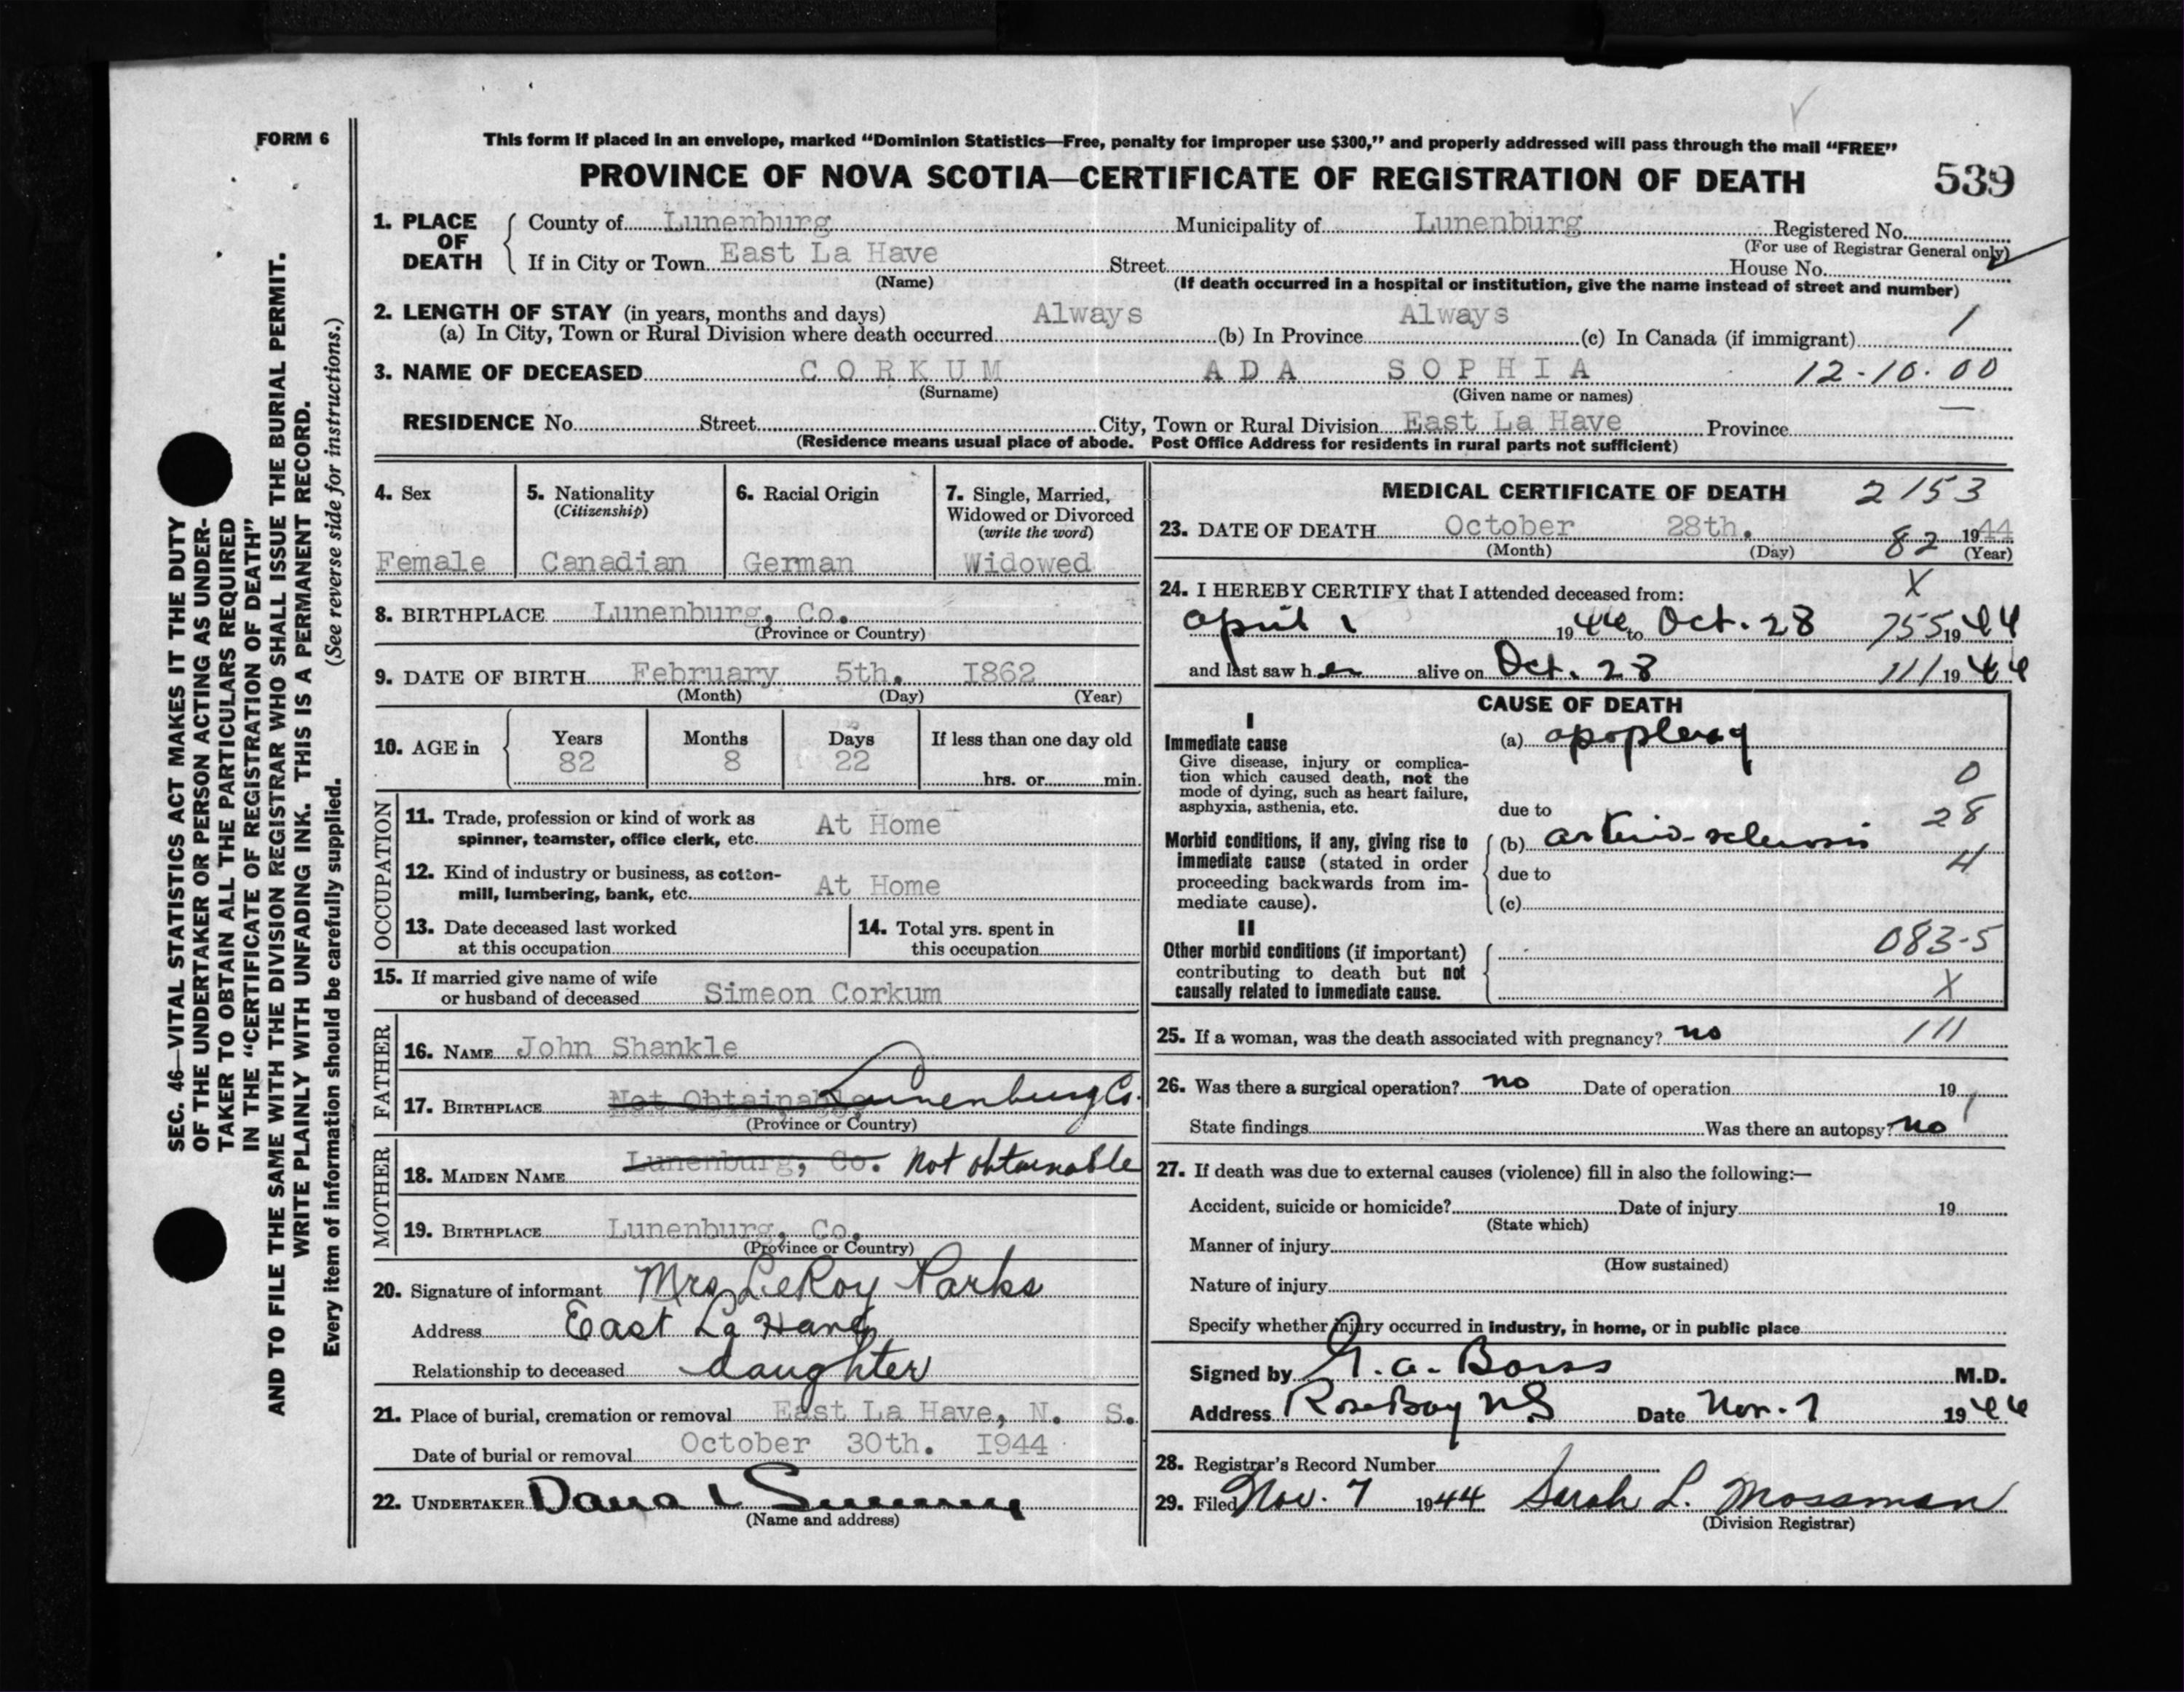 FORM 6
This form if placed in an envelope, marked “Dominion Statistics—Free, penalty for improper use $300,” and properly addressed will pass through the mail “FREE”
PROVINCE OF NOVA SCOTIA—CERTIFICATE OF REGISTRATION OF DEATH 539
1. PLACE OF DEATH
County of Lunenburg Municipality of Lunenburg Registered No.
(For use of Registrar General only)
If in City or Town East La Have Street House No.
(Name) (If death occurred in a hospital or institution, give the name instead of street and number)
2. LENGTH OF STAY (in years, months and days)
(a) In City, Town or Rural Division where death occurred Always (b) In Province Always (c) In Canada (if immigrant) 1
3. NAME OF DECEASED CORKUM ADA SOPHIA 12-10.00
(Surname) (Given name or names)
RESIDENCE No. Street City, Town or Rural Division East La Have Province
(Residence means usual place of abode. Post Office Address for residents in rural parts not sufficient)
4. Sex
Female
5. Nationality
(Citizenship)
Canadian
6. Racial Origin
German
7. Single, Married,
Widowed or Divorced
(write the word)
Widowed
8. BIRTHPLACE Lunenburg, Co.
(Province or Country)
9. DATE OF BIRTH February 5th. I862
(Month) (Day) (Year)
10. AGE in
Years Months Days If less than one day old
82 8 22 hrs. or min.
OCCUPATION
11. Trade, profession or kind of work as
spinner, teamster, office clerk, etc. At Home
12. Kind of industry or business, as cotton-
mill, lumbering, bank, etc. At Home
13. Date deceased last worked
at this occupation
14. Total yrs. spent in
this occupation
15. If married give name of wife
or husband of deceased Simeon Corkum
FATHER
16. NAME John Shankle
17. BIRTHPLACE Not Obtainable Lunenburg Co.
(Province or Country)
MOTHER
18. MAIDEN NAME Lunenburg, Co. Not obtainable
19. BIRTHPLACE Lunenburg, Co.
(Province or Country)
20. Signature of informant Mrs LeRoy Parks
Address East La Have
Relationship to deceased daughter
21. Place of burial, cremation or removal East La Have, N. S.
Date of burial or removal October 30th. I944
22. UNDERTAKER Dana L
(Name and address)
MEDICAL CERTIFICATE OF DEATH 2153
23. DATE OF DEATH October 28th. 82 1944
(Month) (Day) (Year)
24. I HEREBY CERTIFY that I attended deceased from: X
April 1 1944 to Oct. 28 755 1944
and last saw her alive on Oct. 28 111 1944
CAUSE OF DEATH
I
Immediate cause
Give disease, injury or complica-
tion which caused death, not the
mode of dying, such as heart failure,
asphyxia, asthenia, etc.
(a) apoplexy
0
due to 28
Morbid conditions, if any, giving rise to
immediate cause (stated in order
proceeding backwards from im-
mediate cause).
(b) arterio-sclerosis
4
due to
(c)
II
Other morbid conditions (if important)
contributing to death but not
causally related to immediate cause.
083-5
X
25. If a woman, was the death associated with pregnancy? no 111
26. Was there a surgical operation? no Date of operation 19
State findings Was there an autopsy? no
27. If death was due to external causes (violence) fill in also the following:—
Accident, suicide or homicide? Date of injury 19
(State which)
Manner of injury
(How sustained)
Nature of injury
Specify whether injury occurred in industry, in home, or in public place
Signed by M.D.
Address Rose Bay N.S Date Nov. 7 1944
28. Registrar’s Record Number
29. Filed Nov. 7 1944 Sarah L. Mossman
(Division Registrar)
SEC. 46—VITAL STATISTICS ACT MAKES IT THE DUTY
OF THE UNDERTAKER OR PERSON ACTING AS UNDER-
TAKER TO OBTAIN ALL THE PARTICULARS REQUIRED
IN THE “CERTIFICATE OF REGISTRATION OF DEATH”
AND TO FILE THE SAME WITH THE DIVISION REGISTRAR WHO SHALL ISSUE THE BURIAL PERMIT.
WRITE PLAINLY WITH UNFADING INK. THIS IS A PERMANENT RECORD.
Every item of information should be carefully supplied. (See reverse side for instructions.)